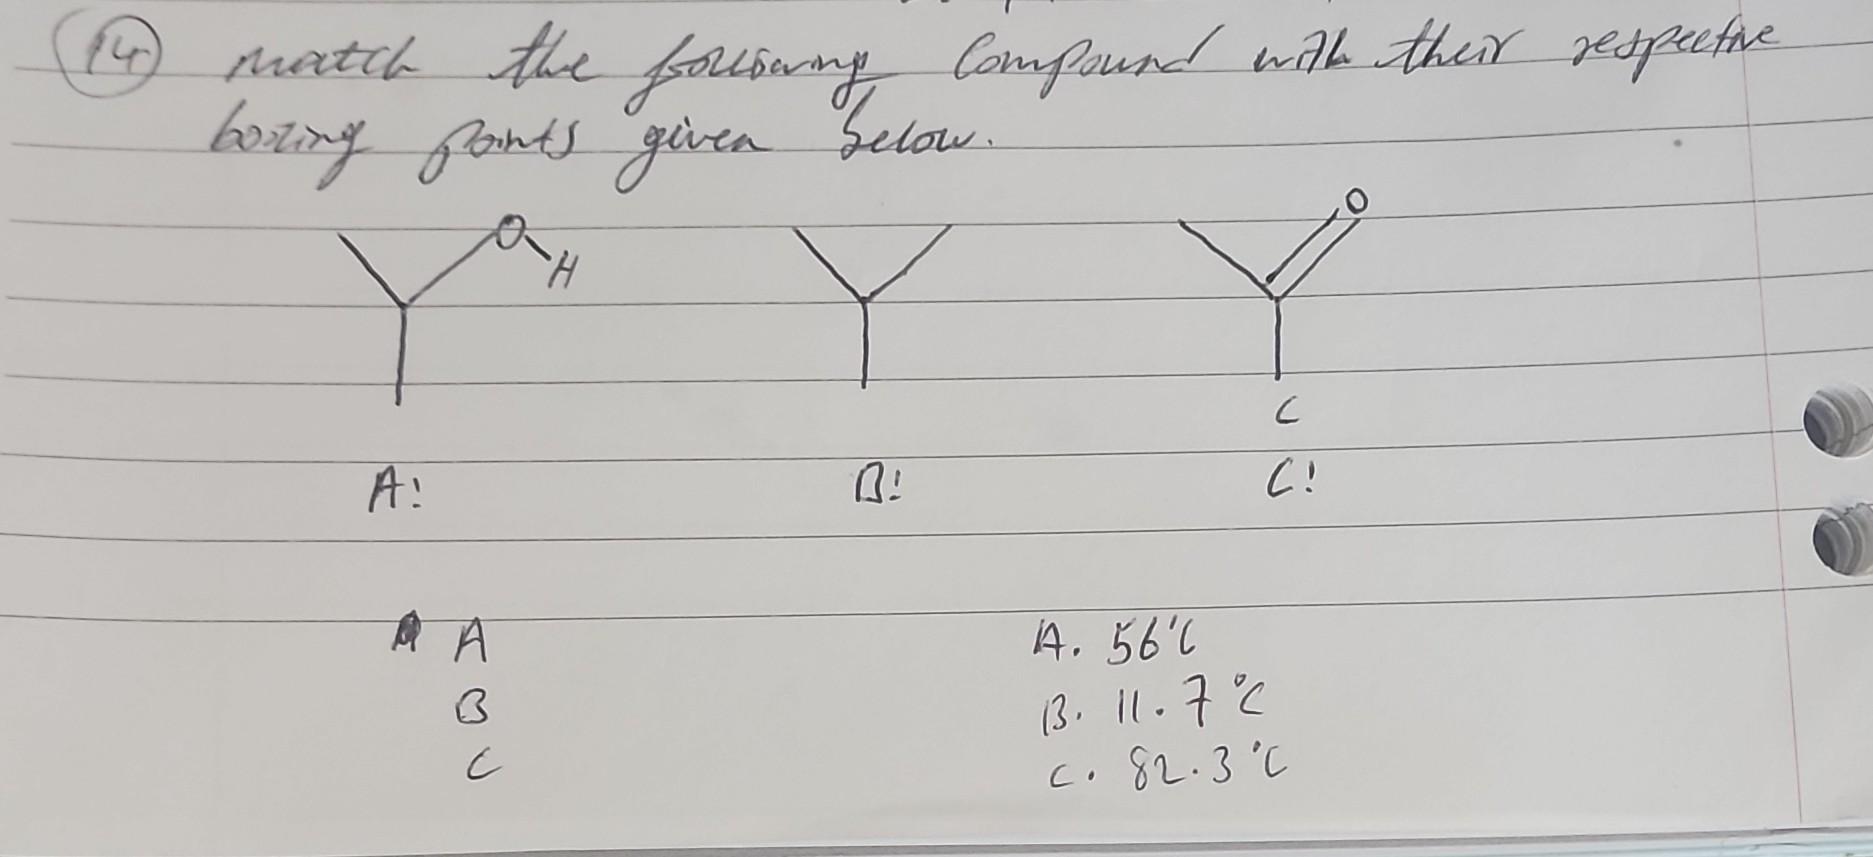 14 match the following Compound with their respective
boiling points given below.
O H
O
C
A! B! C!
A A. 56°C
B B. 11.7°C
C C. 82.3°C